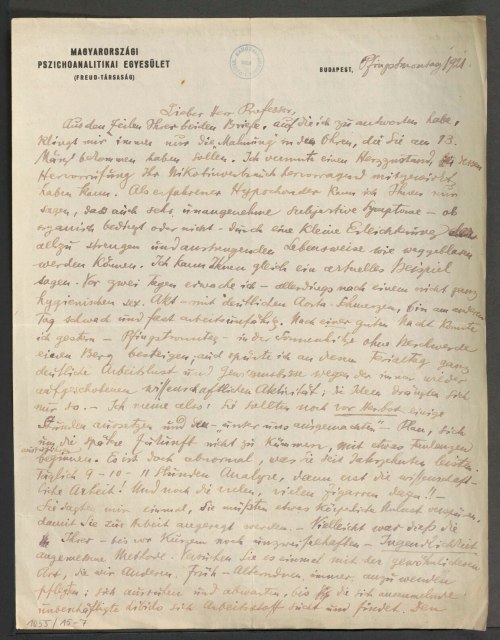 MAGYARORSZÁGI
PSZICHOANALITIKAI EGYESÜLET
(FREUD-TÁRSASÁG)
BUDAPEST, Pfingstmontag 1921
Lieber Herr Professor,
Aus den Zeilen Ihrer beiden Briefe, auf die ich zu antworten habe,
klingt mir immer nur die „Mahnung" in den Ohren, die Sie am 13.
März bekommen haben sollen. Ich vermute einen Herzzustand, dessen
Hervorrufung Ihr Nikotinverbrauch hervorragend mitgewirkt
haben kann. Als erfahrener Hypochonder kann ich Ihnen nur
sagen, dass auch sehr unangenehme subjektive Symptome – ob
organisch bedingt oder nicht – durch eine kleine Erleichterung der
allzu strengen und anstrengenden Lebensweise wie weggeblasen
werden können. Ich kann Ihnen gleich ein aktuelles Beispiel
sagen. Vor zwei Tagen erwache ich – allerdings nach einem nicht ganz
hygienischen sex. Akt – mit deutlichen Aorta-Schmerzen, bin am anderen
Tag schwach und fast arbeitsunfähig. Nach einer guten Nacht konnte
ich gestern – Pfingstsonntag – in der Sonnenhitze ohne Beschwerde
einen Berg besteigen, auch spürte ich an diesem Feiertag ganz
deutliche Arbeitslust und Gewissensbisse wegen der immer wieder
aufgeschobenen wissenschaftlichen Aktivität; die Ideen drängten sich
nur so. – Ich meine also: Sie sollten noch vor Herbst einige
Stunden aussetzen und den „unter uns ausgemachten" Plan, sich
um die spätere Zukunft nicht zu kümmern, mit etwas
beginnen. Es ist doch abnormal, was Sie seit Jahrzehnten leisten.
Täglich 9 – 10 – 11 Stunden Analyse, dann erst die wissenschaft-
liche Arbeit! Und noch die vielen, vielen Zigarren dazu!! –
Sie sagten mir einmal, Sie müssten etwas körperliche Unlust verspüren,
damit Sie zur Arbeit angeregt werden. – Vielleicht war dies die
Ihrer – bis vor Kurzem noch unzweifelhaften – Jugendlichkeit
angemessene Methode. Versuchen Sie es einmal mit der gewöhnlicheren
Art, die wir Anderen, Früh-Alternden, immer anzuwenden
pflegen: sich ausruhen und abwarten, bis die sich ansammelnde
unbeschäftigte Libido sich Arbeitsstoff sucht und findet. Den
1055/15-7